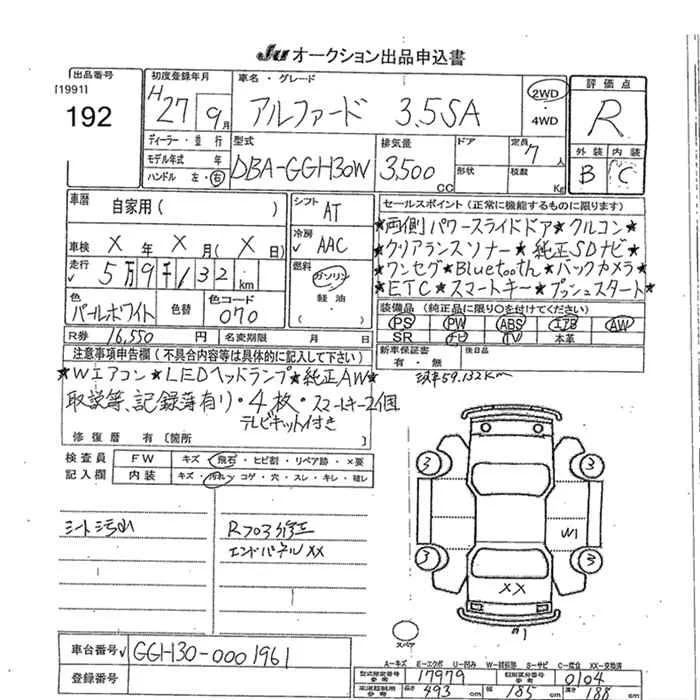 Ju オークション出品申込書
出品番号 [1991] 192
初度登録年月 H27年9月
車名・グレード アルファード 3.5SA
2WD ・ 4WD
評価点 R
外装 内装
B C
ディーラー・並行
モデル年式 年
ハンドル 左・右
型式 DBA-GGH30W
排気量 3,500 CC
ドア 形状
定員 7人
枚数 Kg
車歴 自家用 ( )
シフト AT
車検 X年X月(X日)
冷房 AAC
走行 5万9千132km
燃料 ガソリン 軽油 ・( )
色 パールホワイト 色替 色コード 070
R券 16,550円 名変期限 月 日
セールスポイント (正常に機能するものに限ります)
★両側パワースライドドア★クルコン★
★クリアランスソナー★純正SDナビ★
★ワンセグ★Bluetooth★バックカメラ★
★ETC★スマートキー★プッシュスタート★
装備品 (純正品に限り○を付けてください)
PS PW ABS エアB AW
SR ナビ TV 本革
新車保証書 有・無 後日品
現車59.132km
注意事項申告欄 (不具合内容等は具体的に記入して下さい)
★Wエアコン★LEDヘッドランプ★純正AW★
取説等、記録簿有り・4枚・スマートキー2個
テレビキット付き
修復歴 有 [箇所 ]
検査員記入欄
FW キズ・飛石・ヒビ割・リペア跡・×要
内装 キズ・汚れ・コゲ・穴・スレ・キレ・破レ
シート汚れ
R703修正
エンドパネルXX
3 3 3 3
W1
XX
スペア
車台番号 GGH30-0001961
登録番号
A-キズ E-エクボ U-凹み W-補修跡 S-サビ C-腐食 XX-交換済
型式指定番号 参考 17979 類別区分番号 参考 0104
長さ 493cm 幅 185cm 高さ 188cm